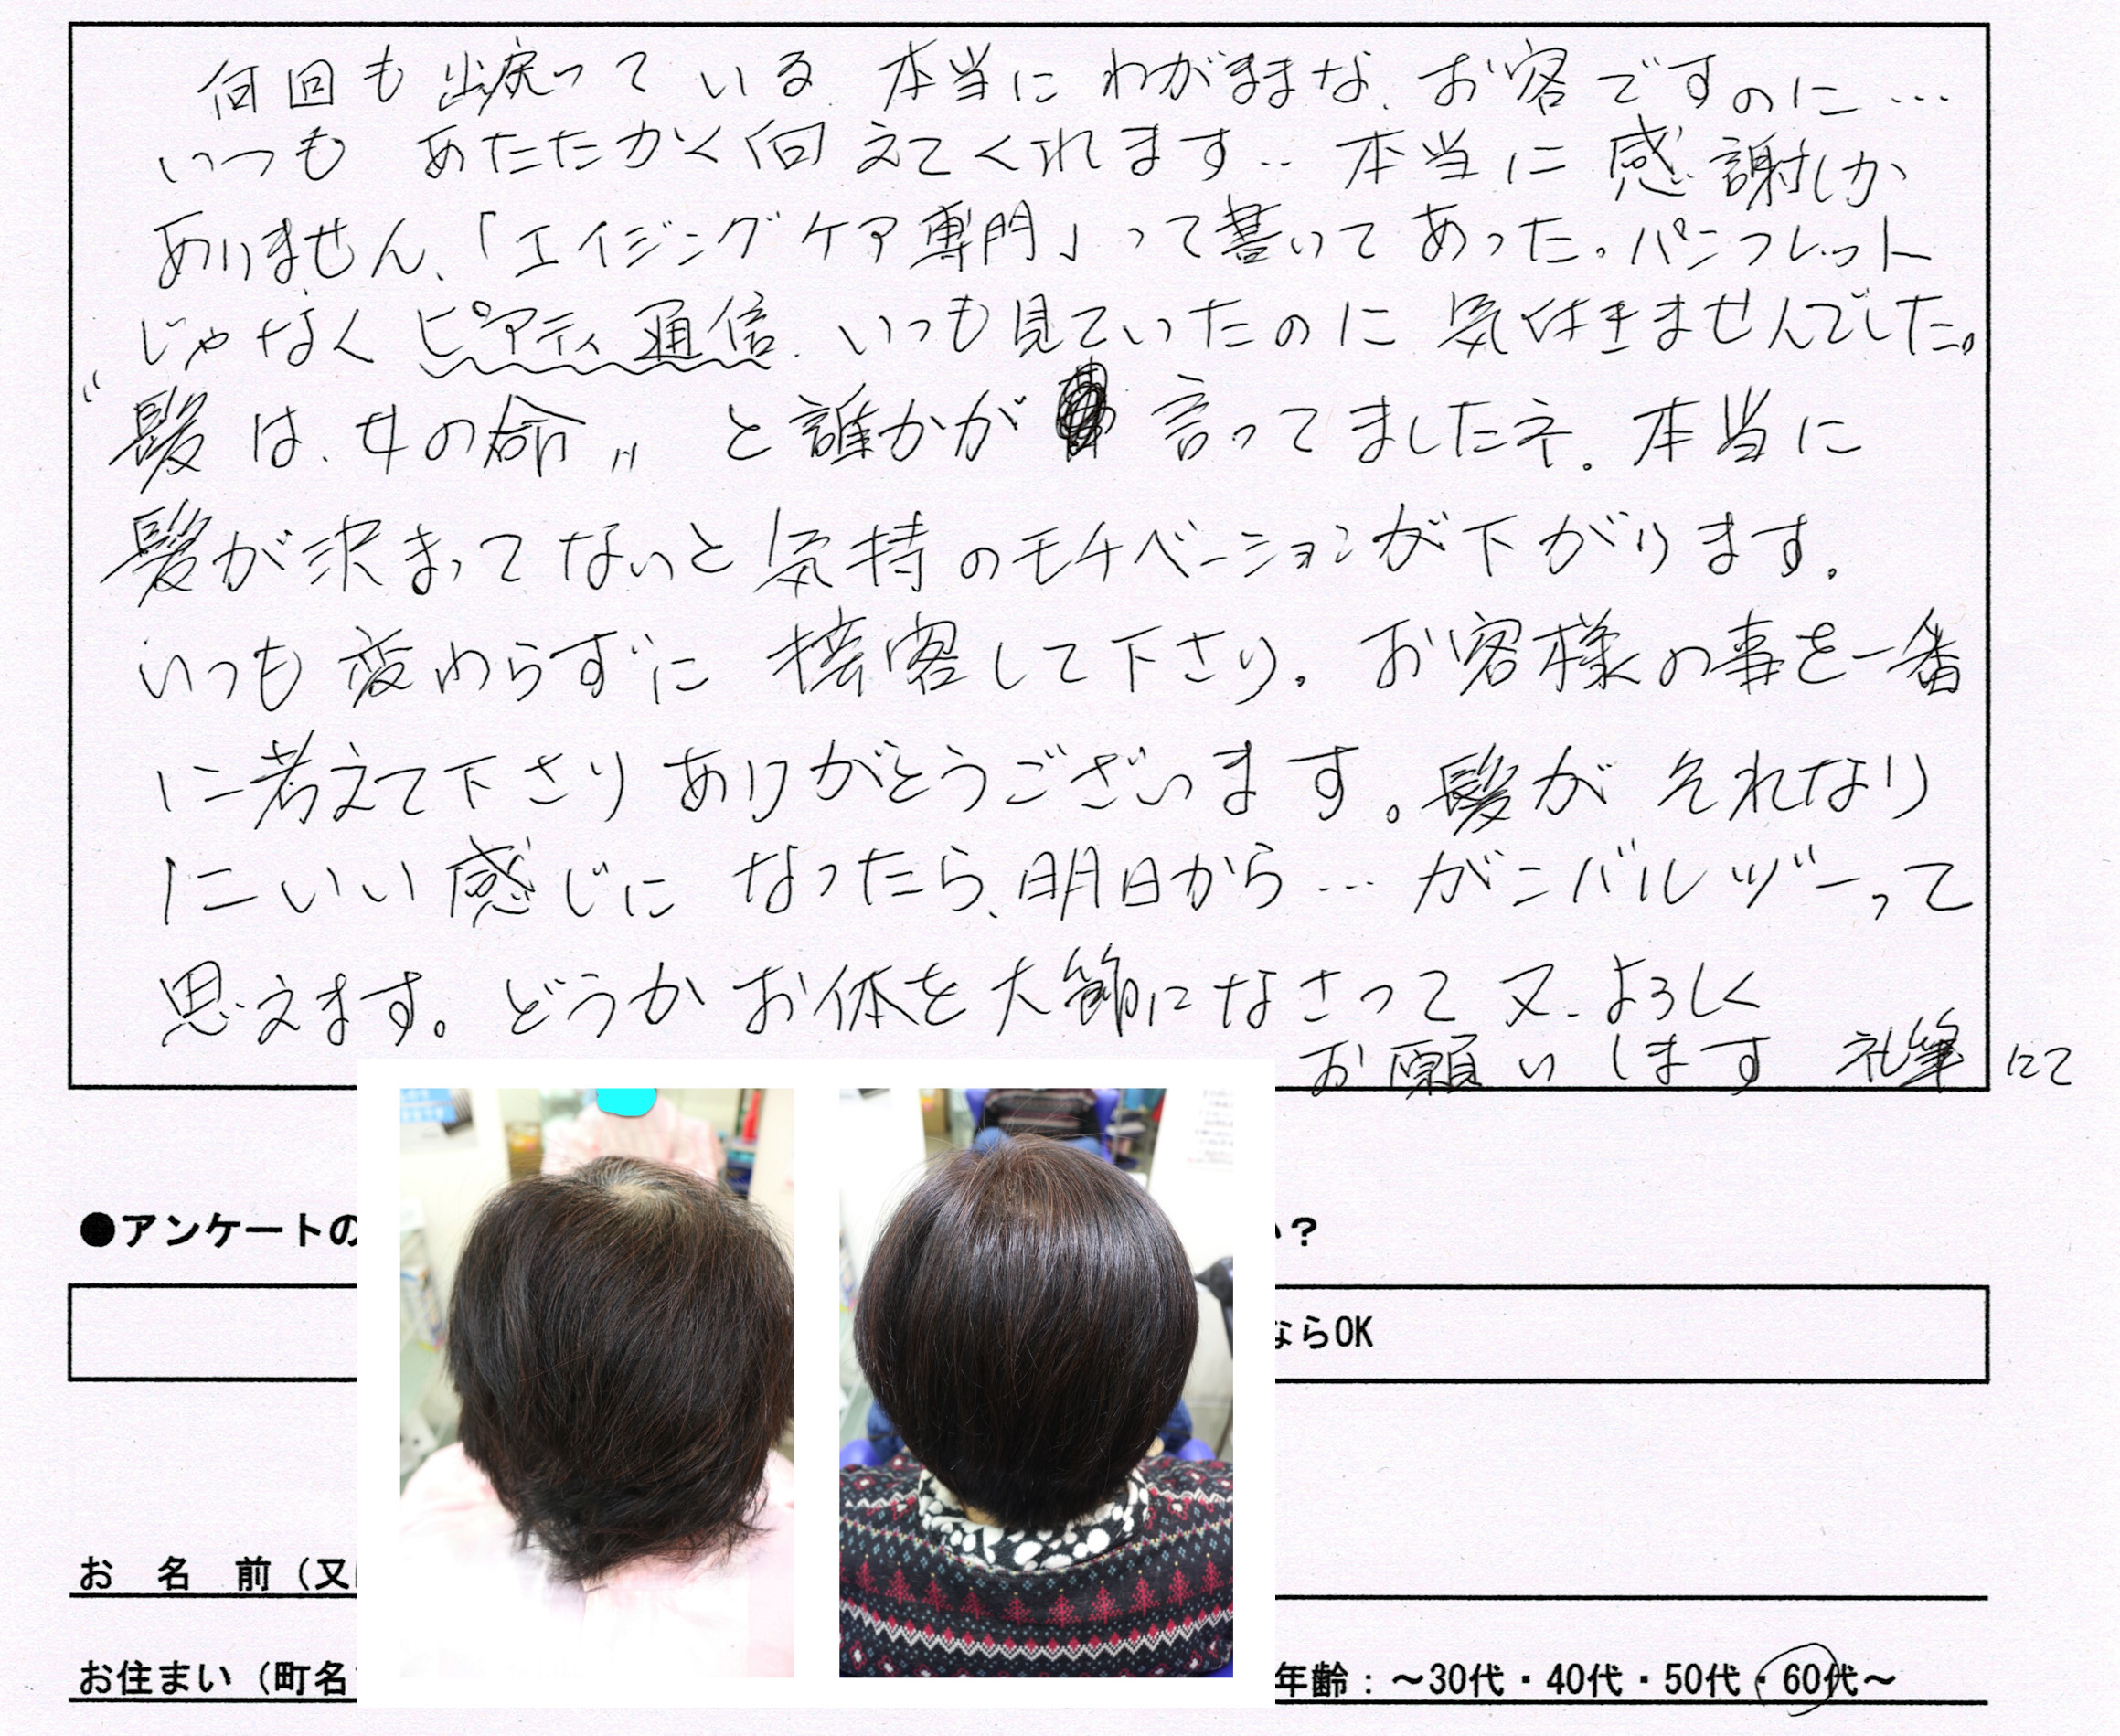 何回も出戻っている本当にわがままな、お客ですのに…
いつもあたたかく向えてくれます‥本当に感謝しか
ありません、「エイジングケア専門」って書いてあった。パンフレット
じゃなくピアティ通信、いつも見ていたのに気付きませんでした。
〝髪は、女の命〟と誰かが言ってましたネ。本当に
髪が決まってないと気持のモチベーションが下がります。
いつも変わらずに接客して下さり。お客様の事を一番
に考えて下さりありがとうございます。髪がそれなり
にいい感じになったら、明日から…ガンバルゾーって
思えます。どうかお体を大節になさって又、よろしく
お願いします 礼筆にて
●アンケートの
い？
ならOK
お 名 前（又
お住まい（町名
年齢：～30代・40代・50代・60代～